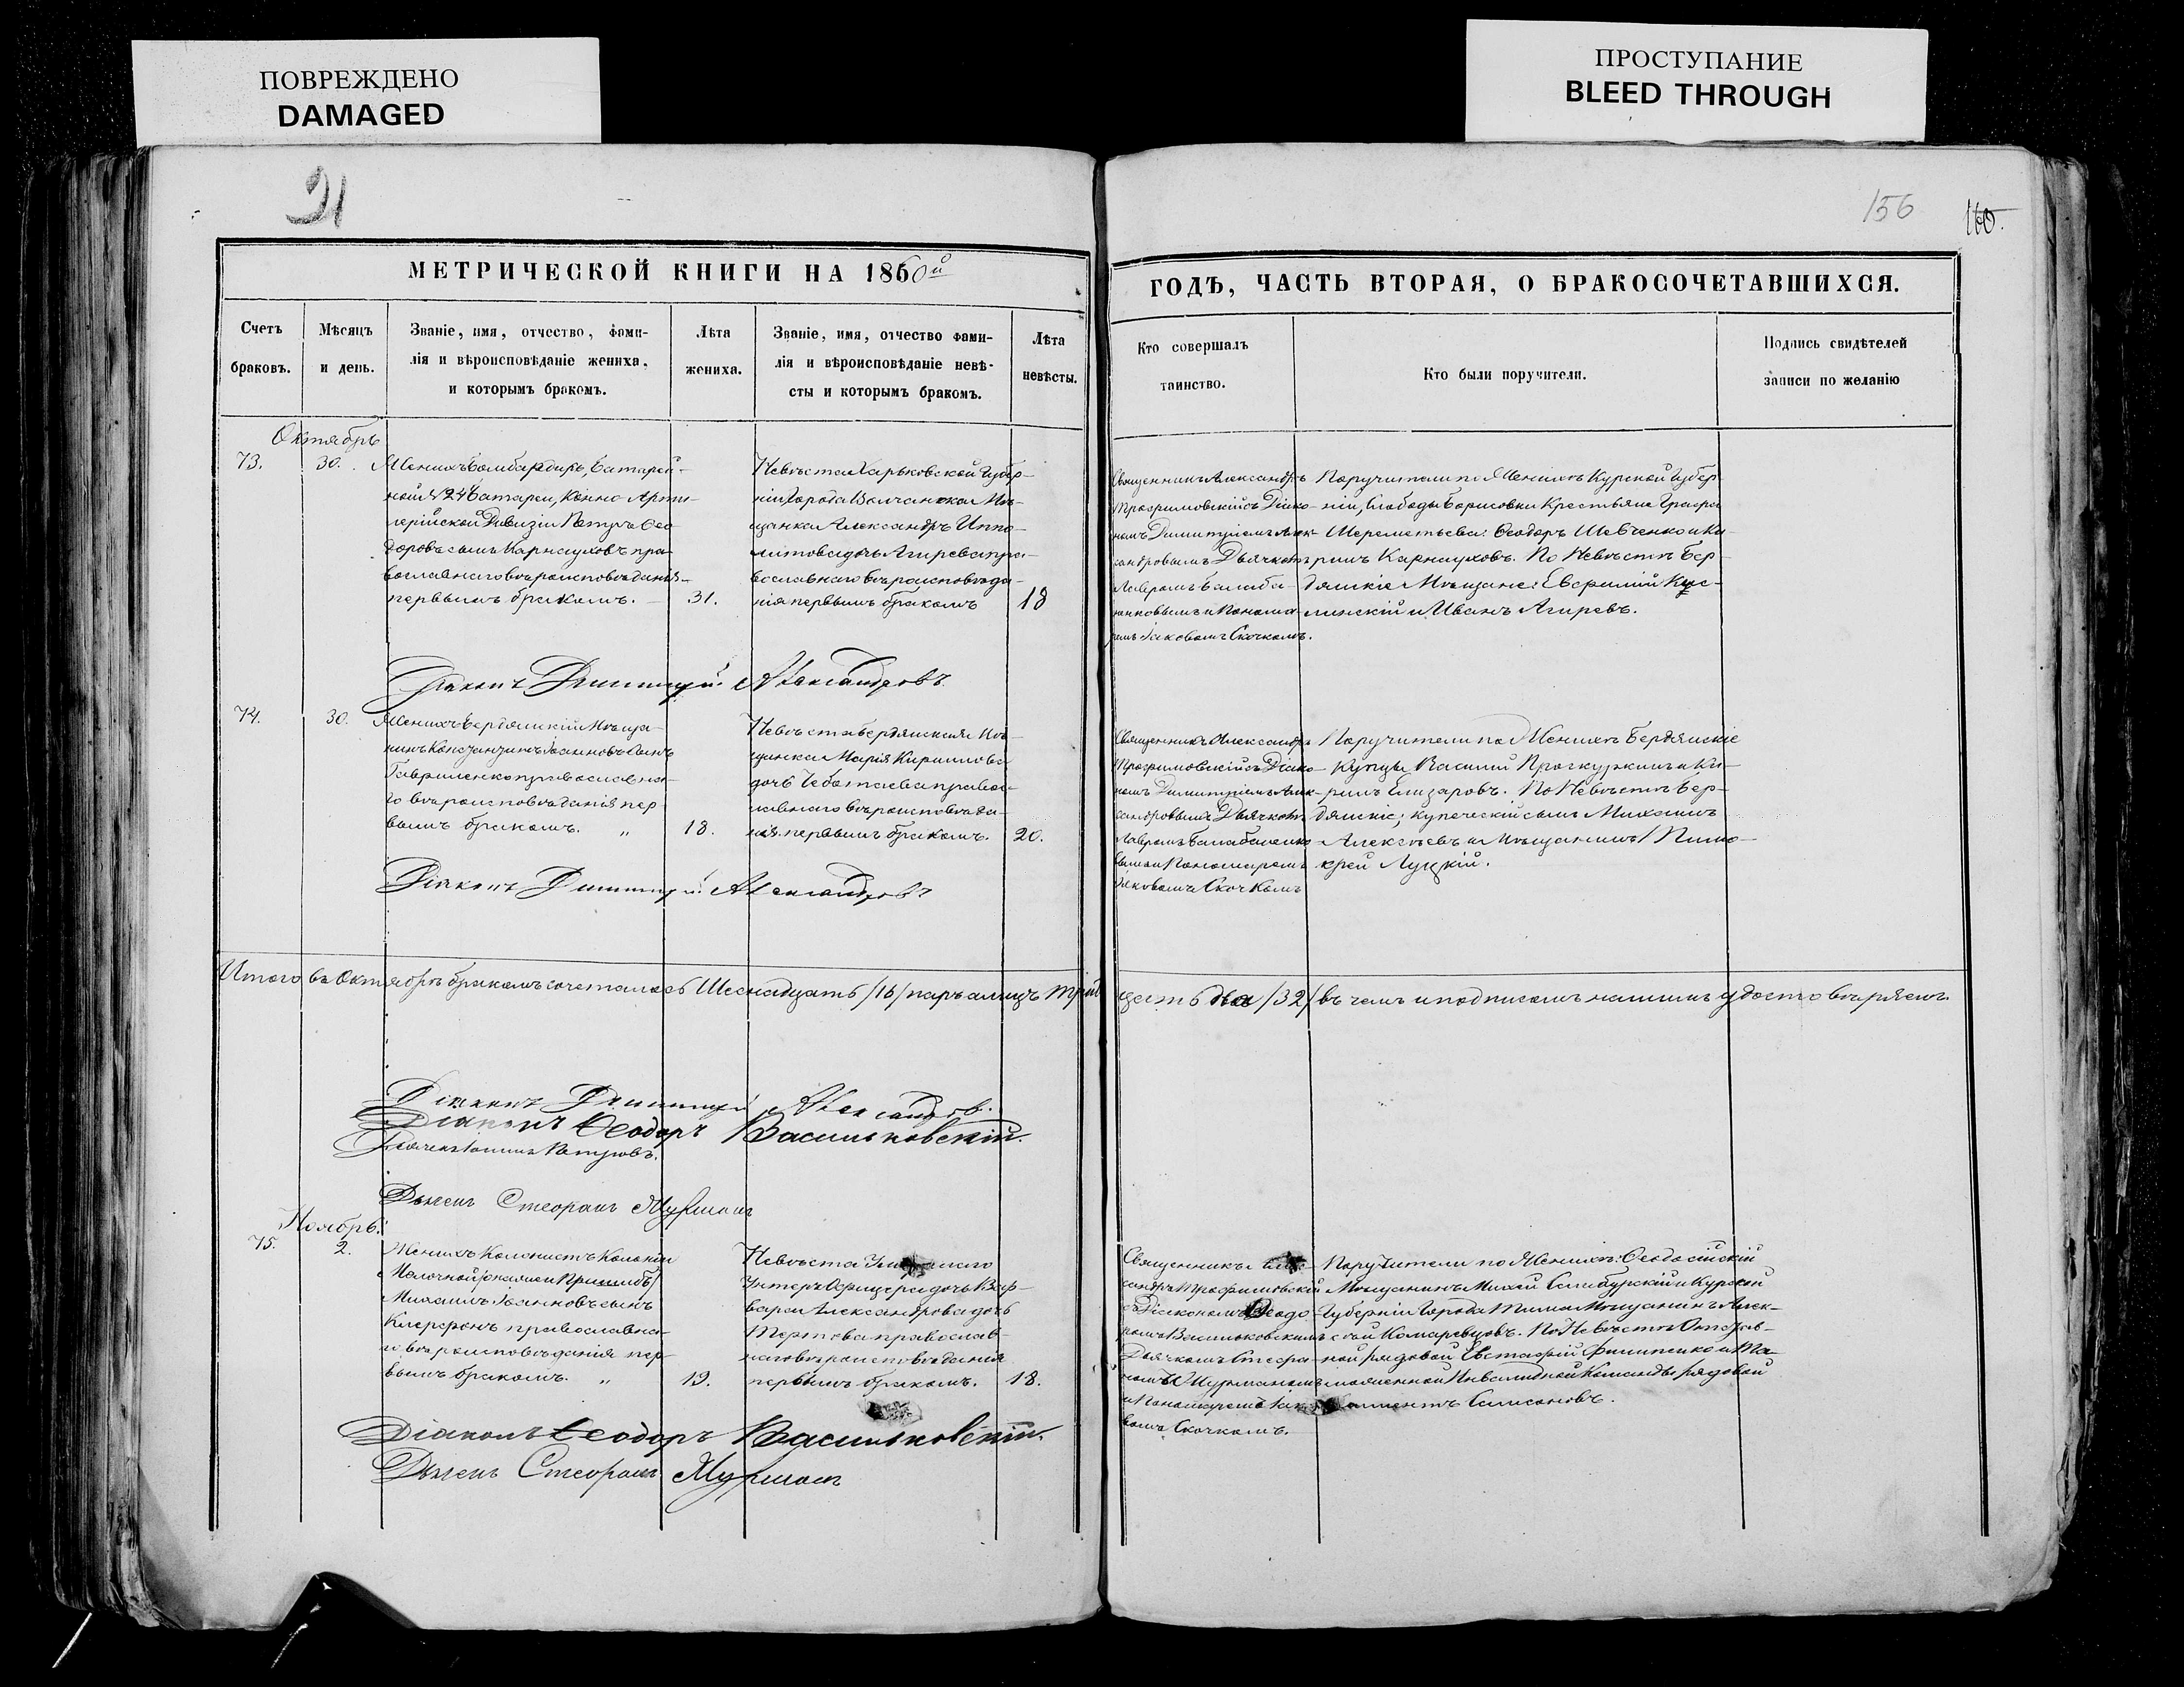 ПОВРЕЖДЕНО
DAMAGED
ПРОСТУПАНИЕ
BLEED THROUGH
21
156
160.
МЕТРИЧЕСКОЙ КНИГИ НА 1860й
ГОДЪ, ЧАСТЬ ВТОРАЯ, О БРАКОСОЧЕТАВШИХСЯ.
Счетъ
браковъ.
Мѣсяцъ
и день.
Званіе, имя, отчество, фами-
лія и вѣроисповѣданіе жениха,
и которымъ бракомъ.
Лѣта
жениха.
Званіе, имя, отчество фами-
лія и вѣроисповѣданіе невѣ-
сты и которымъ бракомъ.
Лѣта
невѣсты.
Кто совершалъ
таинство.
Кто были поручители.
Подпись свидѣтелей
записи по желанію
Октябрь
73.
30.
Женихъ Бомбардиръ, Батарей-
ной №24 батареи, Конно-Арти-
лерійской Дивизіи Петръ Ѳео
доровъ сынъ Карнауховъ пра-
вославнаго вѣроисповѣданія
первымъ бракомъ.
31.
Невѣста Харьковской Губер-
ніи, Города Волчанска Мѣ-
щанка Александра Иппо-
литова дочь Агирева пра-
вославнаго вѣроисповѣда-
нія первымъ бракомъ
18
Священникъ Александръ
Трофимовскій съ Діако-
номъ Димитріемъ Алек-
сандровымъ Дьячкомъ
Лавромъ Балаба-
ненковымъ и Понома-
ремъ Іаковомъ Скочкомъ.
Поручители по Женихѣ Курской Губер
ніи, Слободы Борисовки Крестьяне Графа
Шереметьева: Ѳеодоръ Шевченко и Ки-
рилъ Карнауховъ. По Невѣстѣ Бер-
дянскіе Мѣщане: Евфимій Кус-
линскій и Иванъ Агиревъ.
Діаконъ Димитрій Александровъ
74.
30.
Женихъ Бердянскій Мѣща-
нинъ Констянтинъ Іоанновъ Сынъ
Гавриленко православна-
го вѣроисповѣданія пер
вымъ бракомъ. „
18.
Невѣста бердянская Мѣ-
щанка Марія Кирилова
дочь Чеботаева право-
славнаго вѣроисповѣда-
нія первымъ бракомъ.
20.
Священникъ Александръ
Трофимовскій съ Діако-
номъ Димитріемъ Алек-
сандровымъ Дьячкомъ
Лавромъ Балабаненко-
вымъ и Пономаремъ
Іяковомъ Скочкомъ
Поручители по Женихѣ Бердянскіе
Купцы Василій Проскуркинъ и Ки-
рилъ Елизаровъ. По Невѣстѣ Бер-
дянскіе; купеческій сынъ Михаилъ
Алексѣевъ и Мѣщанинъ Пимо-
фей Луцкій.
Діаконъ Димитрій Александровъ
Итого въ Октябрѣ бракомъ сочеталось Шеснадцать /16/ паръ а лицъ Трид
цать два /32/ въ чемъ и подписомъ нашимъ удостовѣряемъ.
Діаконъ Димитрій Александровъ.
Діаконъ Ѳеодоръ Васильковскій.
Дьячекъ Іоаннъ Петровъ.
Дьячекъ Стефанъ Мурманъ
Ноябрь.
75.
2.
Женихъ Колонистъ Колоніи
Молочной /колоніи Пришибъ/
Михаилъ Іоанновъ сынъ
Клерфонъ православна-
го вѣроисповѣданія пер-
вымъ бракомъ. „
19.
Невѣста
Унтеръ Офицера дочь Вар-
вара Александрова дочь
Тертова православ-
наго вѣроисповѣданія
первымъ бракомъ.
18.
Священникъ Алек-
сандръ Трофимовскій
съ Діакономъ Ѳеодо-
ромъ Васильковскимъ
Дьячкомъ Стефа-
номъ Мурманомъ
и Пономаремъ Іако-
вомъ Скочкомъ.
Поручители по Женихѣ: Ѳеодосійскій
Мѣщанинъ Михей Самбурскій и Курской
Губерніи Города Тима Мѣщанинъ Алек-
сѣй Комаревцовъ. По Невѣстѣ Отстав-
ной рядовой Евстафій Филипенко и Та-
мошенной Инвалидной Команды рядовой
Климентъ Самсоновъ.
Діаконъ Ѳеодоръ Васильковскій.
Дьячекъ Стефанъ Мурманъ